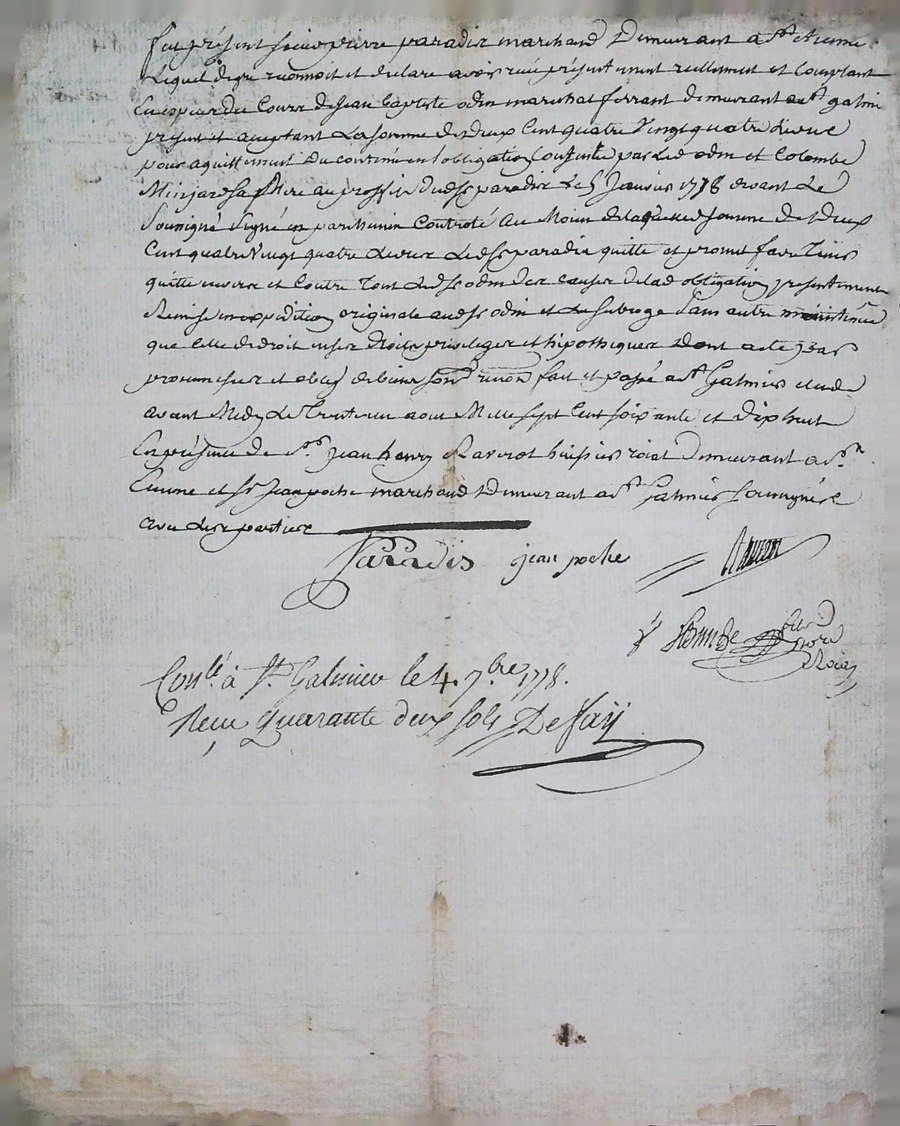 fut présent sieur pierre paradis marchand Demeurant a St Etienne
Lequel degre reconnoit et declare avoir receu presentement reellement et Comptant
En especes du Cours de Jean Baptiste odin marechal ferrant demeurant a St galmier
present et aceptant La somme de deux Cent quatre Vingt quatre Livres
pour aquittement du contenu en l'obligation par Led odin et Colombe
sa Mere au proffit dudsr paradis Le 5 Janvier 1778 devant Le
Soussigné Signé en parchemin Controlé Au Moien de laquelle somme de deux
Cent quatre Vingt quatre Livres Ledsr paradis quitte et promet faire Tenir
quitte envers et Contre Tous Leds odin des Causes de lad obligation presentement
Remise en expedition originale auds odin et Le subroge sans autre
que Celle de droit en ses Droits privileges et hipotheques Dont acte
promesses et oblig de biens renon fait et passé a St Galmier etude
avant Midy Le Trente un aout Mille sept Cent soixante et Dix huit
En présence de sr Jean henry Ravirot huissier roial Demeurant a St
Etienne et sr Jean poche marchand Demeurant a St Galmier soussignés
avec Les parties
Paradis jean poche
Conlé à St Galmier le 4. 7bre 1778.
Receu Quarante deux sols DeJaÿ